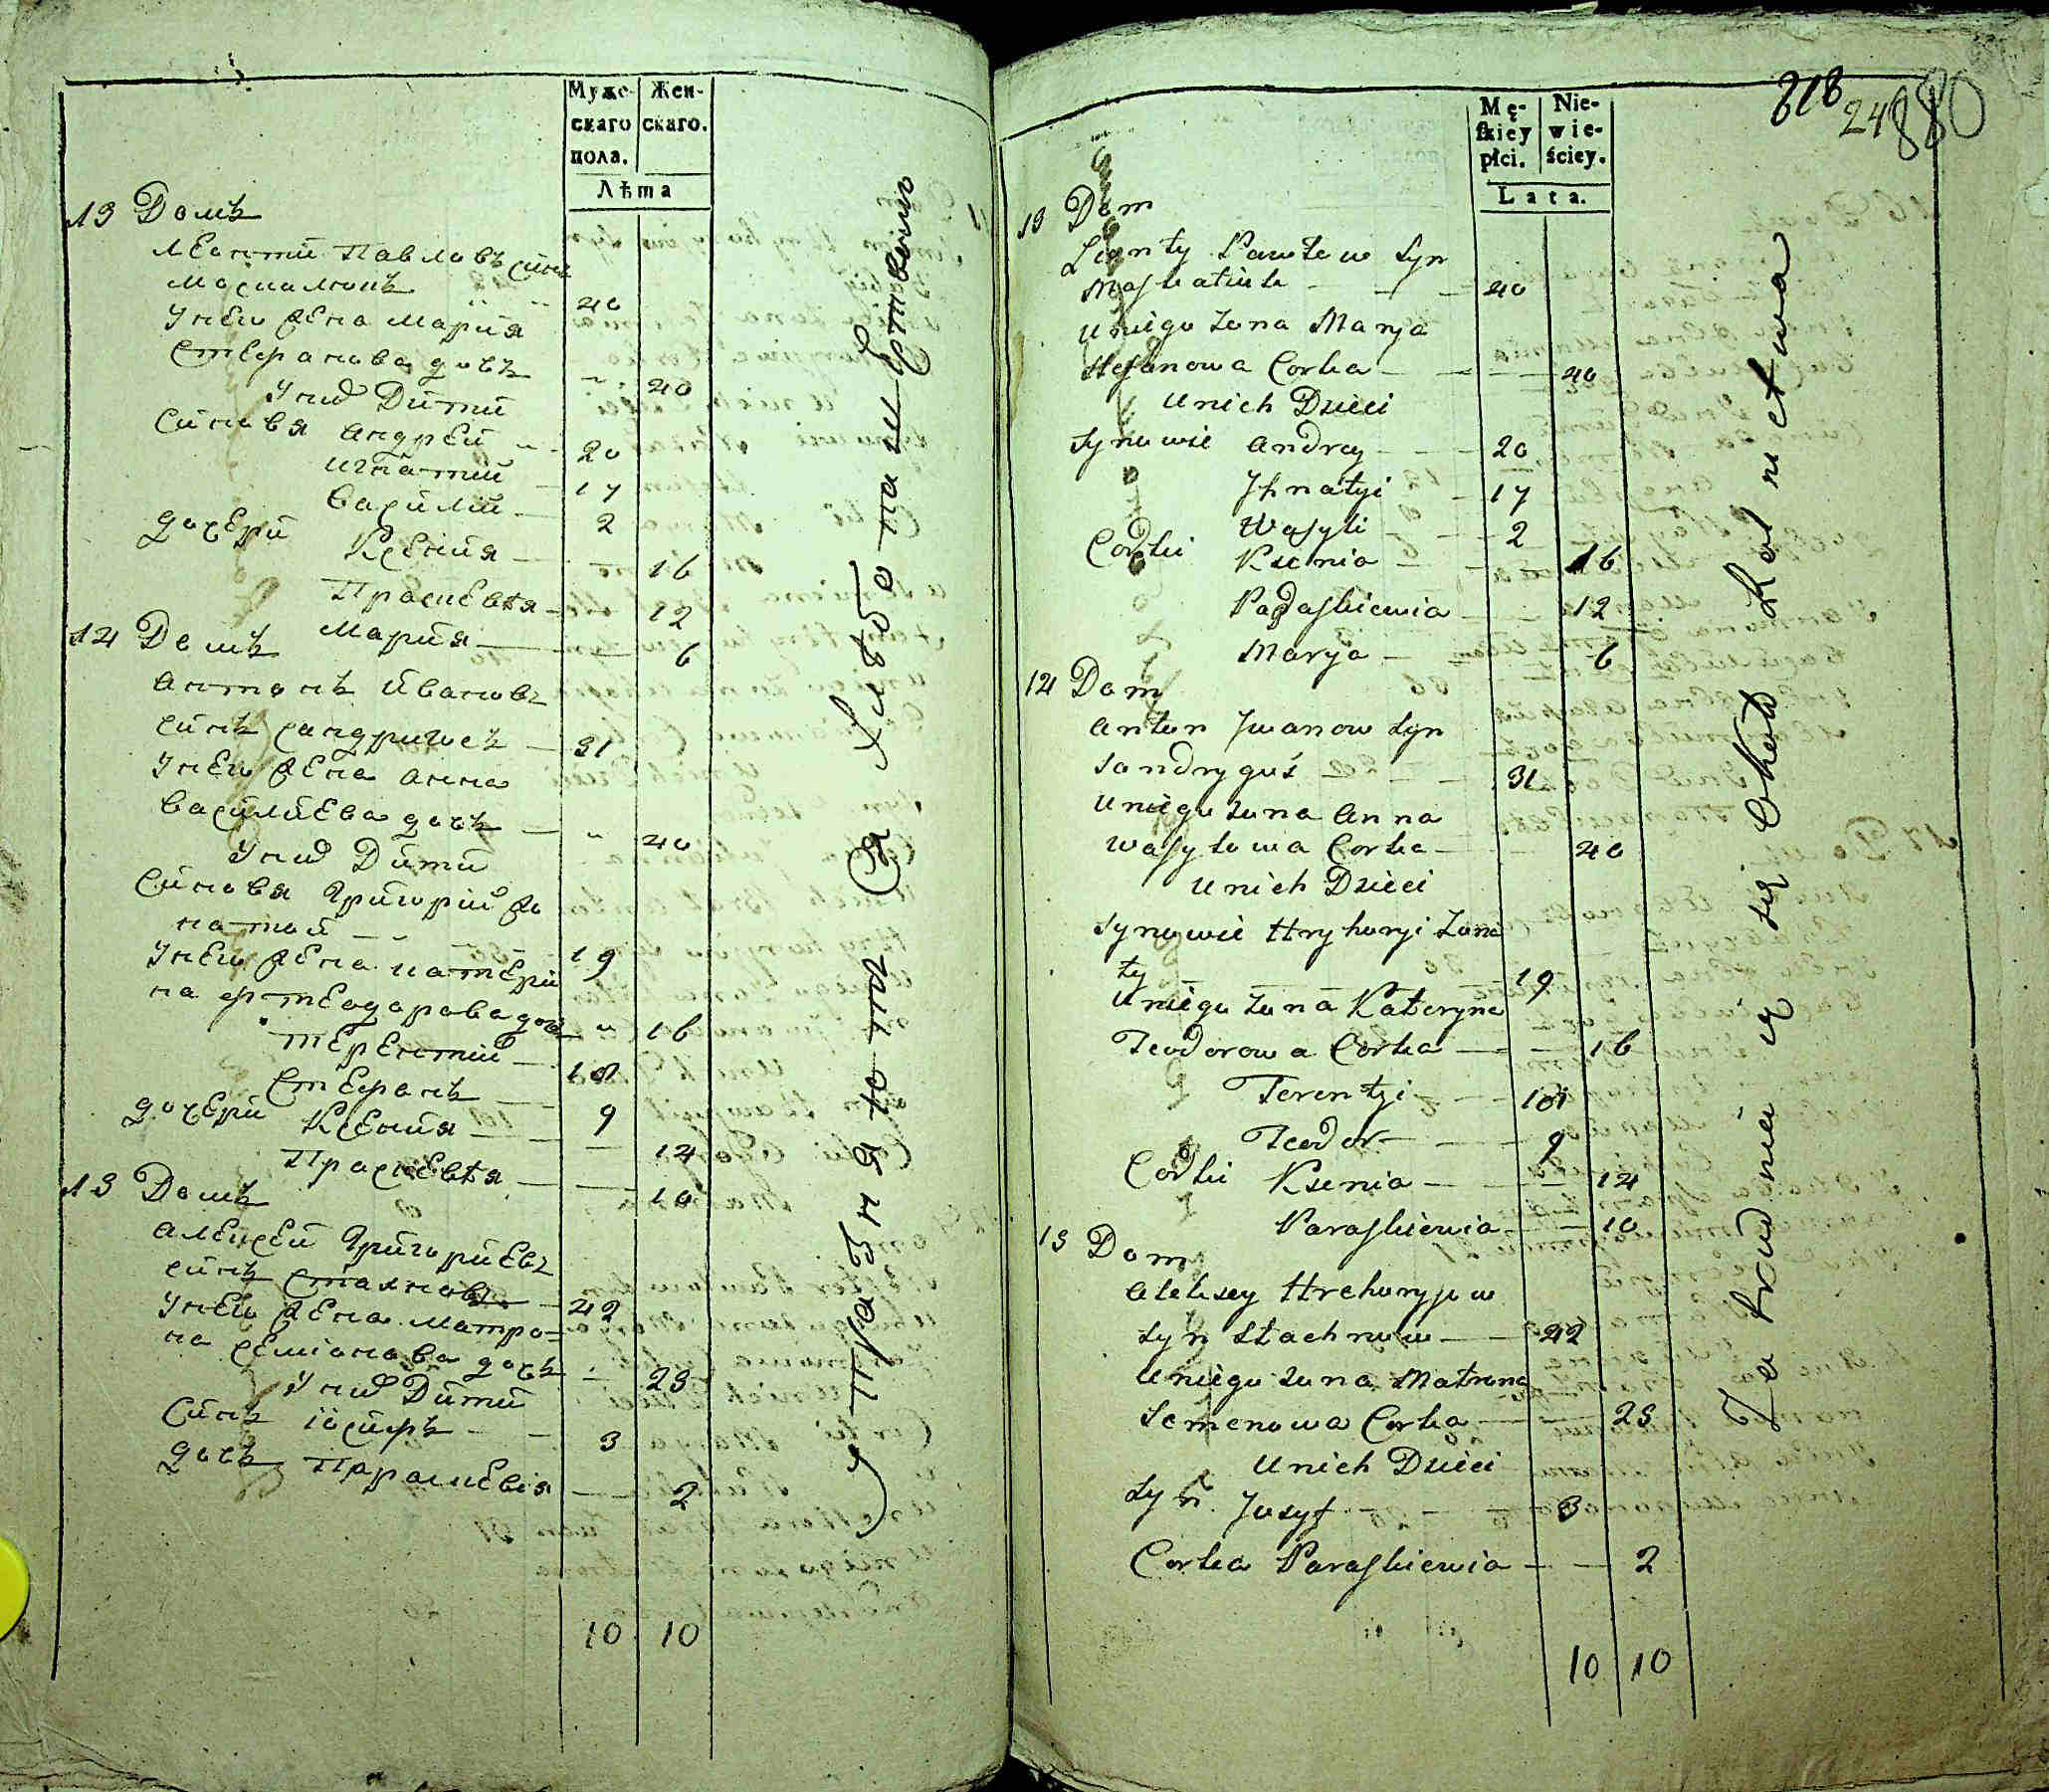 Муже-
скаго
пола.
Жен-
скаго.
Лѣта
13 Домъ
Леонтий Павловъ синъ
40
Унего жена Мария
Стефанова дочь 40
Унихъ Дити
Синовя Андрей 20
Игнатий 17
Василий 2
Дочери Ксения 16
Праскевія 12
Мария 6
14 Домъ
Антонъ Ивановъ
синъ Сандригосъ 31
Унего жена Анна
Василиева дочь 40
Унихъ Дити
Синовя Григорий жо
натый 19
Унего жена Катери
на Фтеодорова дочь 16
Терентий
Стефанъ 9
Дочери Ксения 14
Праскевія 10
Домъ
Алексей Григориевъ
синъ Стахновъ 42
Унего жена Матро=
на Семіонова дочь 23
Унихъ Дити
Синъ Іосифъ 3
Дочь Параскевія 2
10 10
занятія хлѣбопашествомъ
818
24880
Mę-
skiey
płci.
Nie-
wie-
ściey.
Lata.
13 Dom
Pawłow Syn
40
Uniego Zona Marya
Stefanowa Corka 40
Unich Dzieci
Synowie Andrey 20
Ihnatyi 17
Wasyli 2
Corki Ksenia 16
Paraskiewia 12
Marya 6
14 Dom
Anton Iwanow Syn
Sandryguś 31
Uniego Zona Anna
Wasylowa Corka 40
Unich Dzieci
Synowie Hryhoryi Zona
ty 19
Uniego Zona Kateryna
Teodorowa Corka 16
Terentyi
Teodor 9
Corki Ksenia 14
Paraskiewia 10
Dom
Aleksey Hrehoryjow
Syn Stachnow 42
Uniego Zona Matrona
Semenowa Corka 23
Unich Dzieci
Syn Josyf 3
Corka Paraskiewia 2
10 10
Zatrudnia ią się Około Rolnictwa